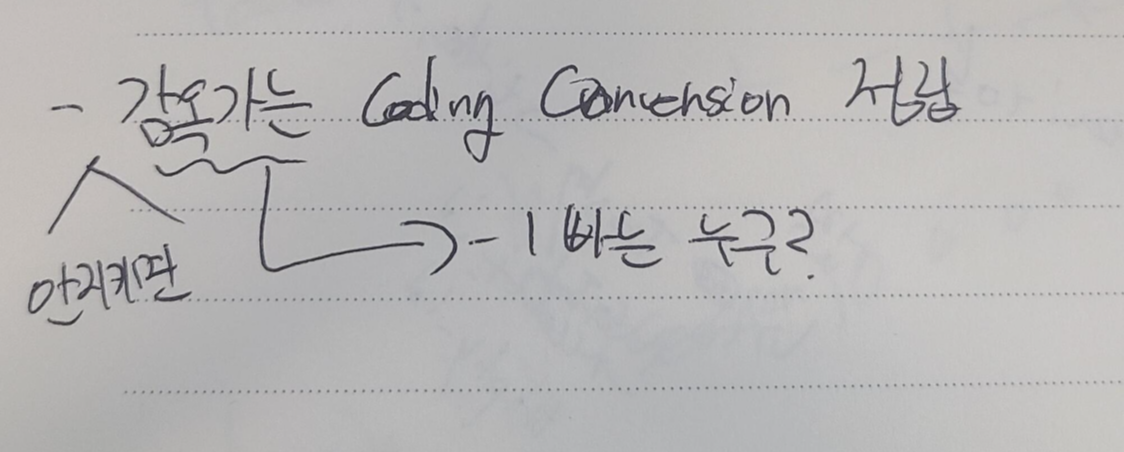 - 감옥가는 Coding Convension 정립
- 1빠는 누구?
안지키면